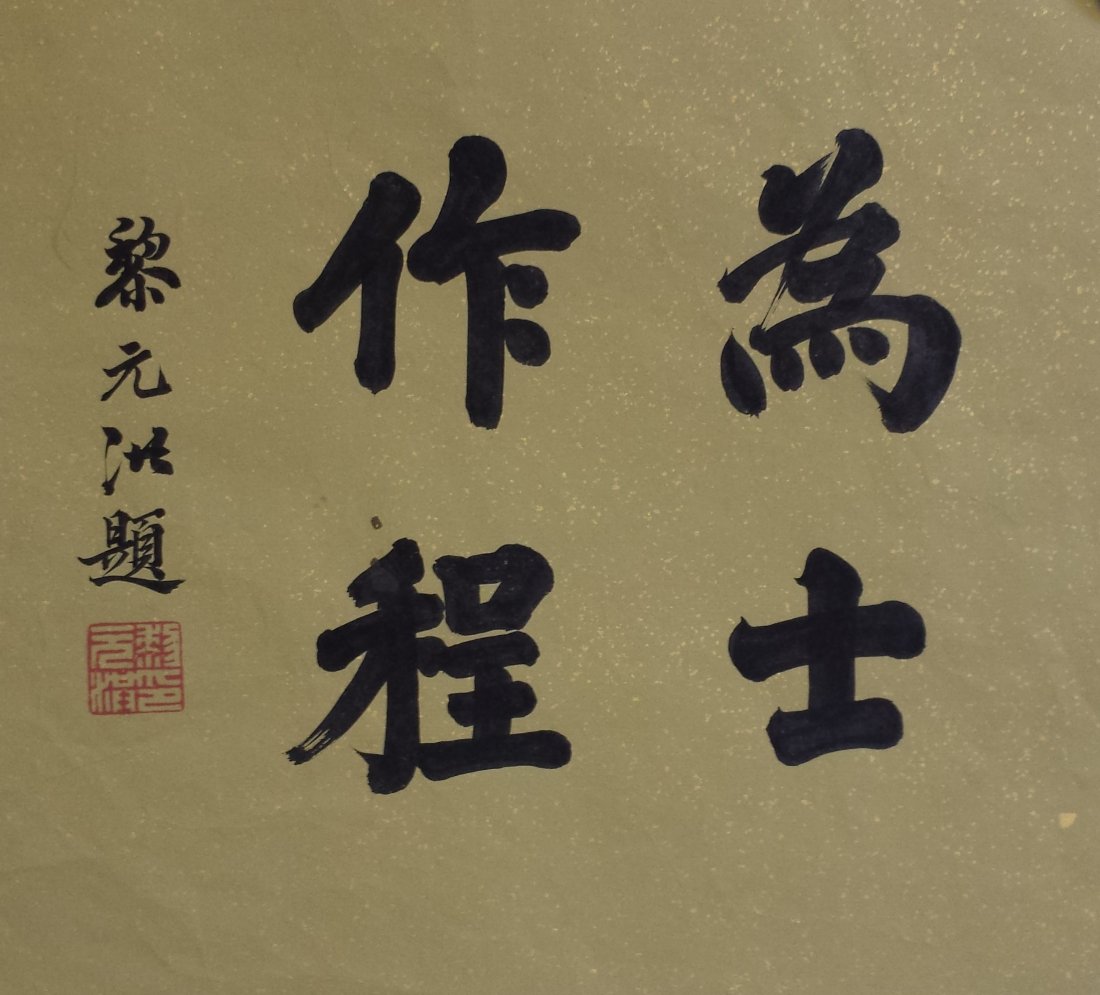 為士
作程
黎元洪題
黎元洪印